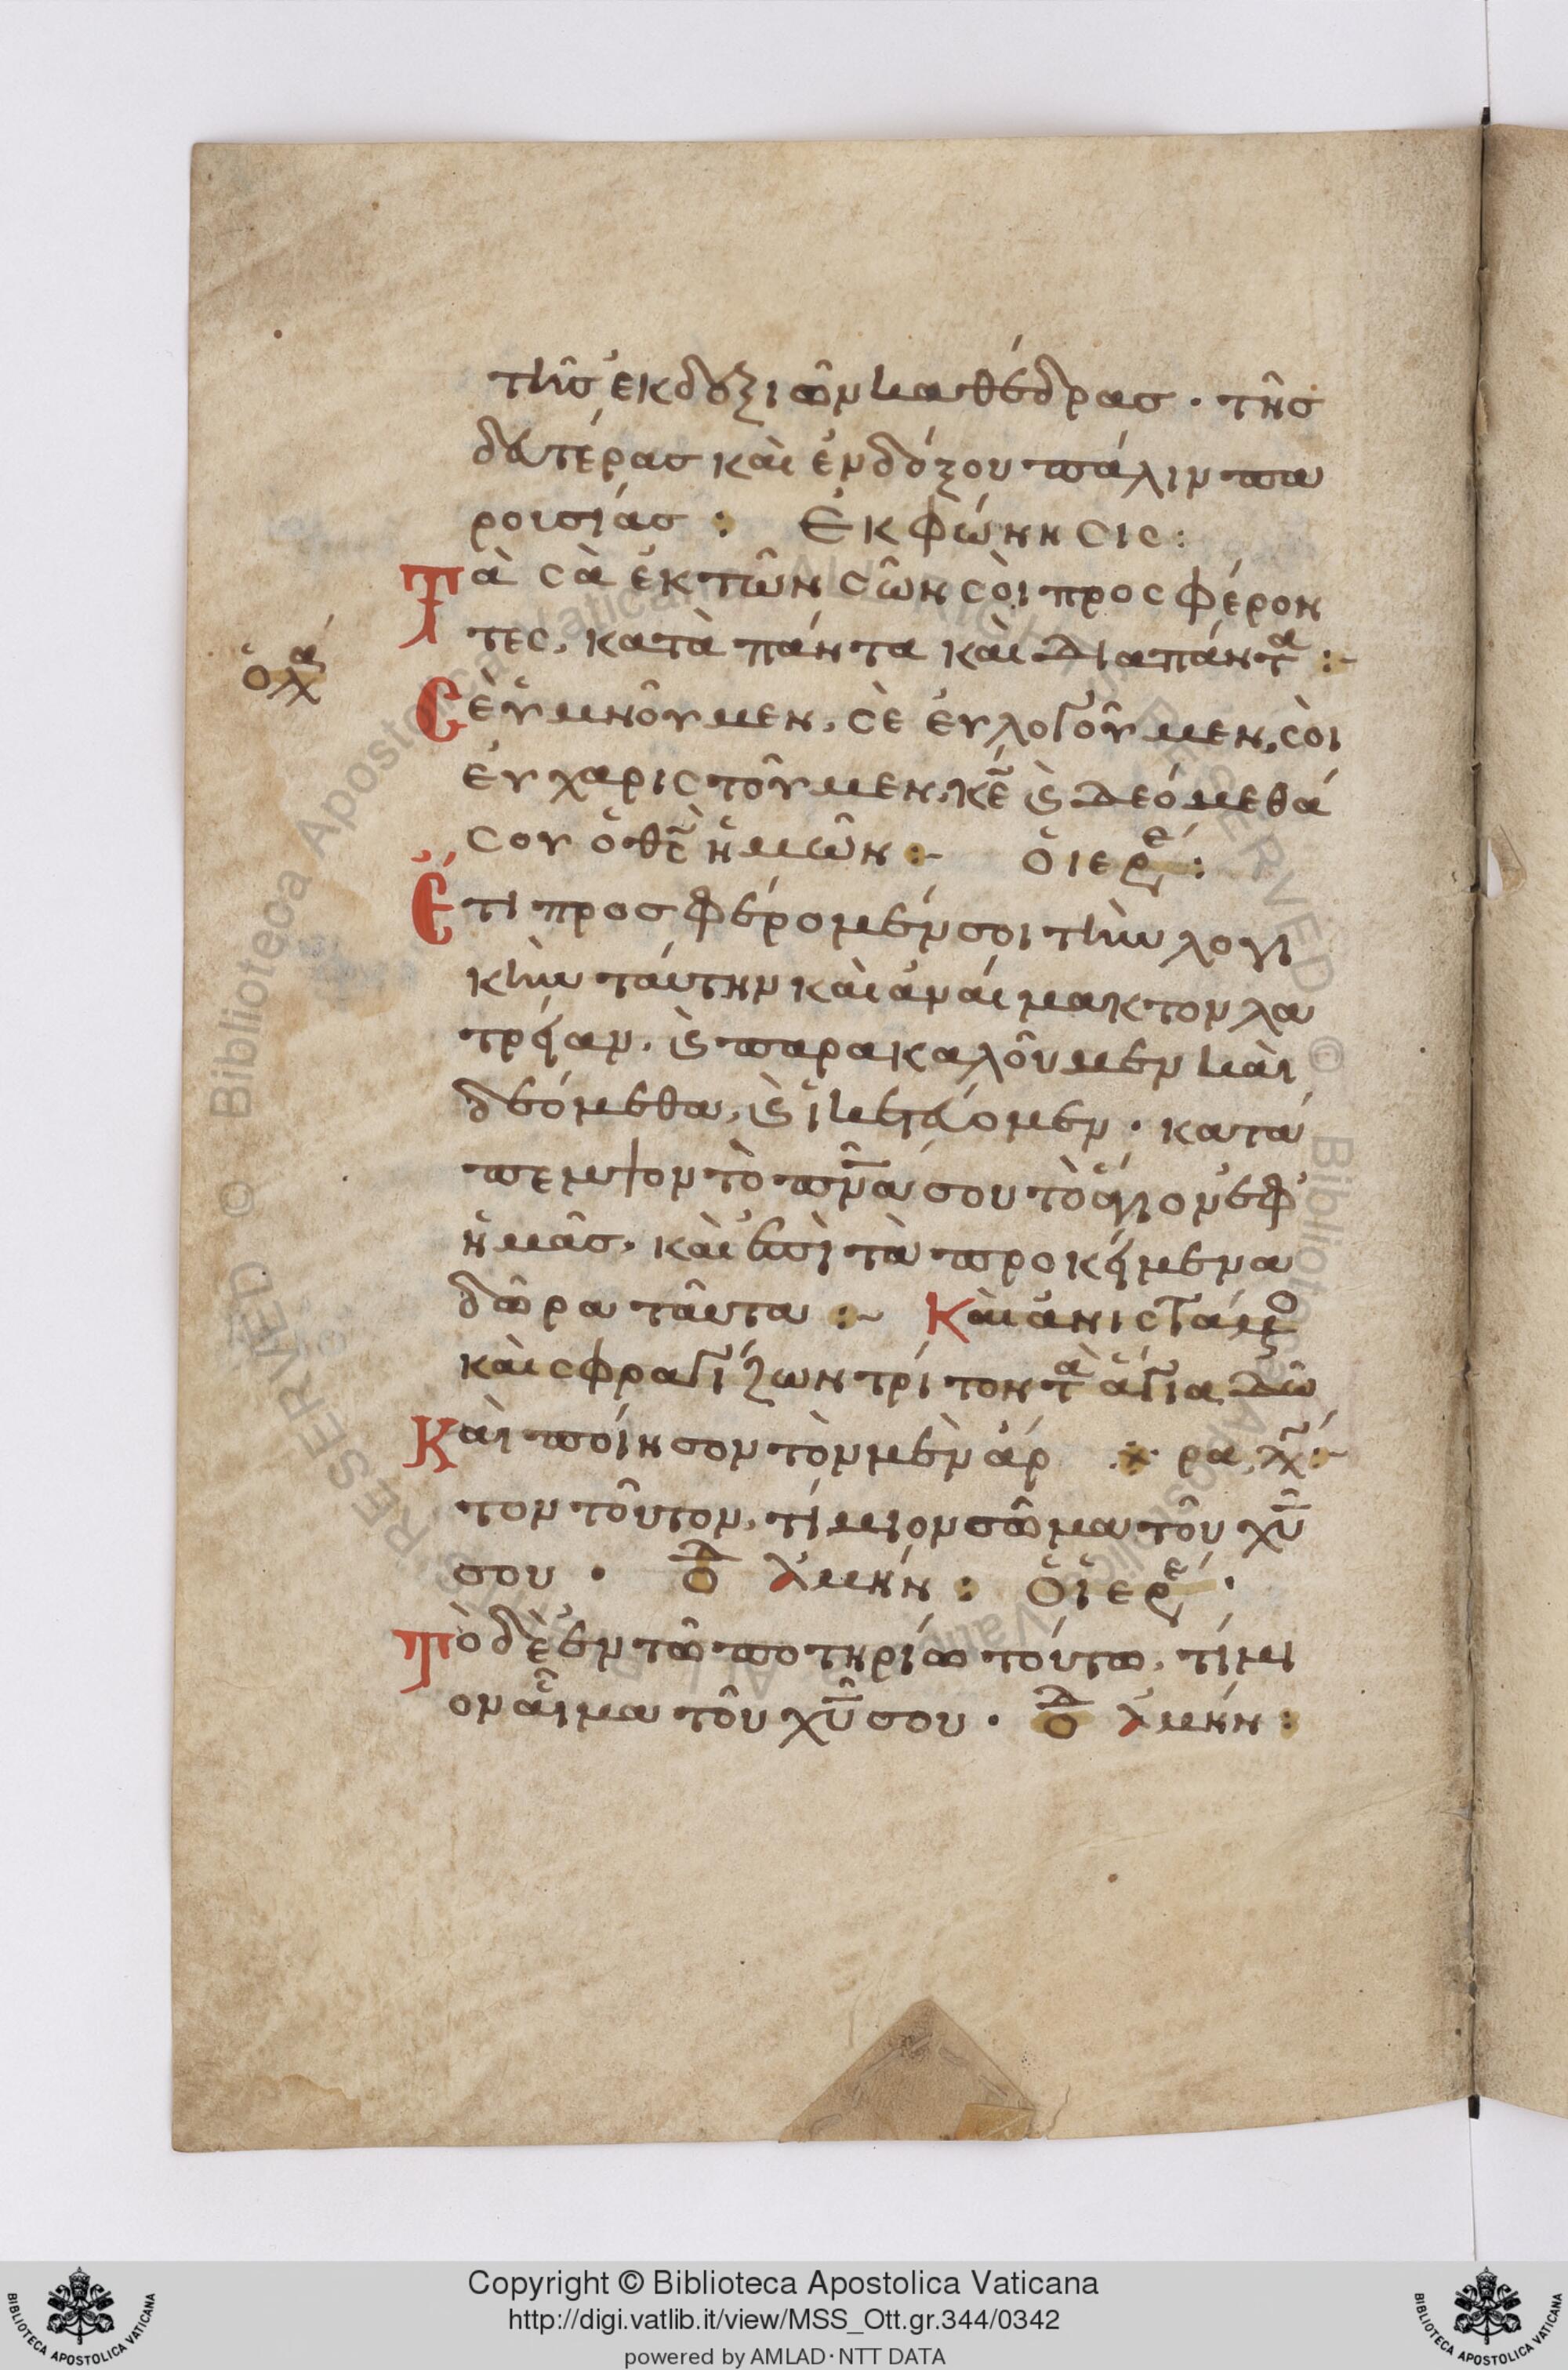 τῆς ἐκ δεξιῶν καθέδρας · τῆς
δευτέρας καὶ ἐνδόξου πάλιν πα
ρουσίας : Ἐκφώνησις :
Τὰ σὰ ἐκ τῶν σῶν σοὶ προσφέρον
τες, κατὰ πάντα καὶ διαπάντα :~
ὁ λα
Σὲ ὑμνοῦμεν, σὲ εὐλογοῦμεν, σοὶ
εὐχαριστοῦμεν, κε̅ ϗ δεόμεθά
σου ὁ θς̅ ἡμῶν :~ ὁ ἱερε :
Ἔτι προσφέρομέν σοι τὴν λογι
κὴν ταύτην καὶ ἀναίμακτον λα
τρείαν, ϗ παρακαλοῦμεν καὶ
δεόμεθα, ϗ ἱκετεύομεν · κατά
πεμψον τὸ πν̅α σου τὸ ἅγιον ἐφ
ἡμᾶς, καὶ ἐπὶ τὰ προκείμενα
δῶρα ταῦτα :~ Καὶ ἀνιστάμενο
καὶ σφραγίζων τρίτον τὰ ἅγια δῶ
Καὶ ποίησον τὸν μὲν ἄρ ρα, λέγ :~
τον τοῦτον, τίμιον σῶμα τοῦ χυ̅
σου · ὁ δ Ἀμήν : ὁ ἱερε ·
Τὸ δὲ ἐν τῶ ποτηρίω τούτω, τίμι
ον αἷμα τοῦ χυ̅ σου · ὁ δ Ἀμήν :
Copyright © Biblioteca Apostolica Vaticana
http://digi.vatlib.it/view/MSS_Ott.gr.344/0342
powered by AMLAD · NTT DATA
BIBLIOTECA APOSTOLICA VATICANA
BIBLIOTECA APOSTOLICA VATICANA